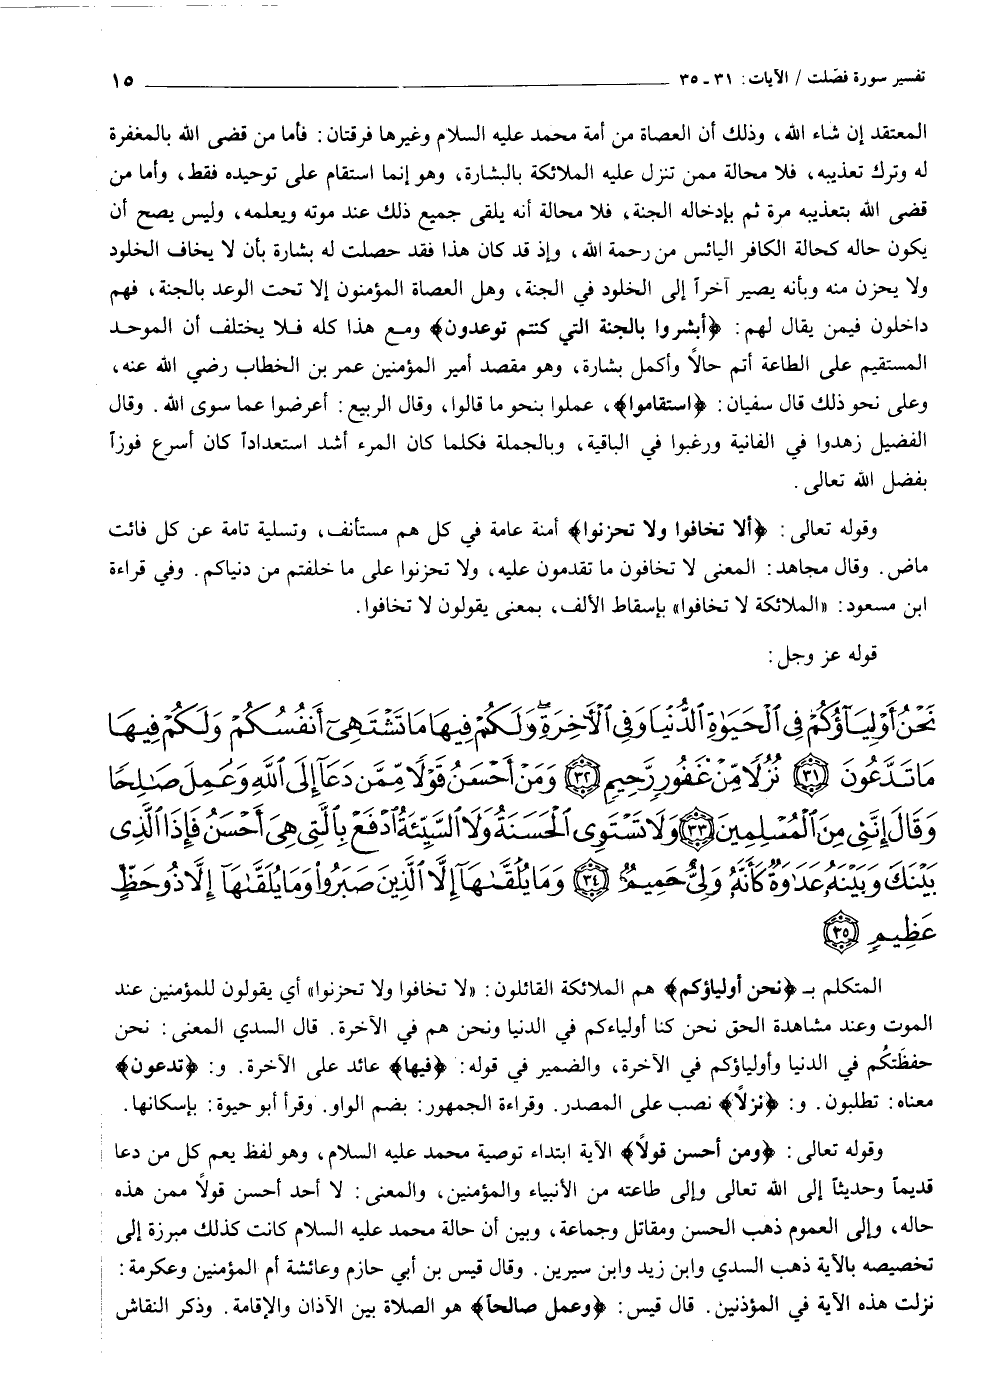 تفسير سورة فصّلت / الآيات: ٣١ ـ ٣٥ ١٥
المعتقد إن شاء الله، وذلك أن العصاة من أمة محمد عليه السلام وغيرها فرقتان: فأما من قضى الله بالمغفرة
له وترك تعذيبه، فلا محالة ممن تنزل عليه الملائكة بالبشارة، وهو إنما استقام على توحيده فقط، وأما من
قضى الله بتعذيبه مرة ثم بإدخاله الجنة، فلا محالة أنه يلقى جميع ذلك عند موته ويعلمه، وليس يصح أن
يكون حاله كحالة الكافر اليائس من رحمة الله، وإذ قد كان هذا فقد حصلت له بشارة بأن لا يخاف الخلود
ولا يحزن منه وبأنه يصير آخراً إلى الخلود في الجنة، وهل العصاة المؤمنون إلا تحت الوعد بالجنة، فهم
داخلون فيمن يقال لهم: ﴿أبشروا بالجنة التي كنتم توعدون﴾ ومع هذا كله فلا يختلف أن الموحد
المستقيم على الطاعة أتم حالاً وأكمل بشارة، وهو مقصد أمير المؤمنين عمر بن الخطاب رضي الله عنه،
وعلى نحو ذلك قال سفيان: ﴿استقاموا﴾، عملوا بنحو ما قالوا، وقال الربيع: أعرضوا عما سوى الله. وقال
الفضيل زهدوا في الفانية ورغبوا في الباقية، وبالجملة فكلما كان المرء أشد استعداداً كان أسرع فوزاً
بفضل الله تعالى.
وقوله تعالى: ﴿ألا تخافوا ولا تحزنوا﴾ أمنة عامة في كل هم مستأنف، وتسلية تامة عن كل فائت
ماض. وقال مجاهد: المعنى لا تخافون ما تقدمون عليه، ولا تحزنوا على ما خلفتم من دنياكم. وفي قراءة
ابن مسعود: «الملائكة لا تخافوا» بإسقاط الألف، بمعنى يقولون لا تخافوا.
قوله عز وجل:
نَحْنُ أَوْلِيَآؤُكُمْ فِى ٱلْحَيَوٰةِ ٱلدُّنْيَا وَفِى ٱلْأَخِرَةِ ۖ وَلَكُمْ فِيهَا مَا تَشْتَهِىٓ أَنفُسُكُمْ وَلَكُمْ فِيهَا
مَا تَدَّعُونَ ﴿٣١﴾ نُزُلًا مِّنْ غَفُورٍ رَّحِيمٍ ﴿٣٢﴾ وَمَنْ أَحْسَنُ قَوْلًا مِّمَّن دَعَآ إِلَى ٱللَّهِ وَعَمِلَ صَـٰلِحًا
وَقَالَ إِنَّنِى مِنَ ٱلْمُسْلِمِينَ ﴿٣٣﴾ وَلَا تَسْتَوِى ٱلْحَسَنَةُ وَلَا ٱلسَّيِّئَةُ ۚ ٱدْفَعْ بِٱلَّتِى هِىَ أَحْسَنُ فَإِذَا ٱلَّذِى
بَيْنَكَ وَبَيْنَهُۥ عَدَٰوَةٌ كَأَنَّهُۥ وَلِىٌّ حَمِيمٌ ﴿٣٤﴾ وَمَا يُلَقَّىٰهَآ إِلَّا ٱلَّذِينَ صَبَرُوا۟ وَمَا يُلَقَّىٰهَآ إِلَّا ذُو حَظٍّ
عَظِيمٍ ﴿٣٥﴾
المتكلم بـ ﴿نحن أولياؤكم﴾ هم الملائكة القائلون: «لا تخافوا ولا تحزنوا» أي يقولون للمؤمنين عند
الموت وعند مشاهدة الحق نحن كنا أولياءكم في الدنيا ونحن هم في الآخرة. قال السدي المعنى: نحن
حفظَتكُم في الدنيا وأولياؤكم في الآخرة، والضمير في قوله: ﴿فيها﴾ عائد على الآخرة. و: ﴿تدعون﴾
معناه: تطلبون. و: ﴿نزلاً﴾ نصب على المصدر. وقراءة الجمهور: بضم الواو. وقرأ أبو حيوة: بإسكانها.
وقوله تعالى: ﴿ومن أحسن قولاً﴾ الآية ابتداء توصية محمد عليه السلام، وهو لفظ يعم كل من دعا
قديماً وحديثاً إلى الله تعالى وإلى طاعته من الأنبياء والمؤمنين، والمعنى: لا أحد أحسن قولاً ممن هذه
حاله، وإلى العموم ذهب الحسن ومقاتل وجماعة، وبين أن حالة محمد عليه السلام كانت كذلك مبرزة إلى
تخصيصه بالآية ذهب السدي وابن زيد وابن سيرين. وقال قيس بن أبي حازم وعائشة أم المؤمنين وعكرمة:
نزلت هذه الآية في المؤذنين. قال قيس: ﴿وعمل صالحاً﴾ هو الصلاة بين الأذان والإقامة. وذكر النقاش